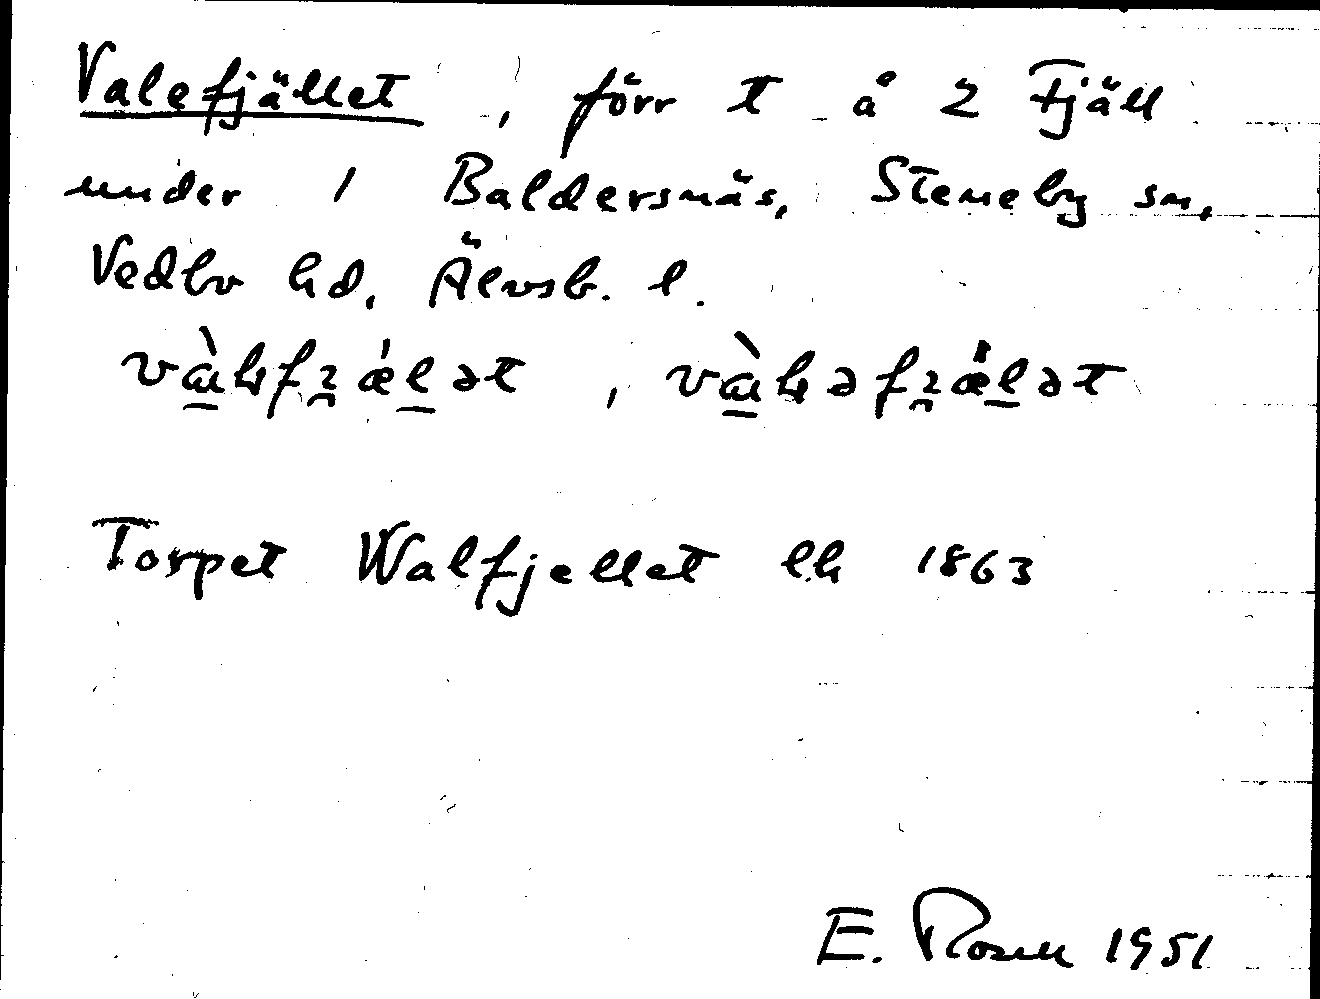 Valefjället, förr t å 2 Fjäll
under 1 Baldersnäs, Steneby sn,
Vedbo hd, Älvsb. l.
Torpet Walfjellet lh 1863
E. Rosell 1951